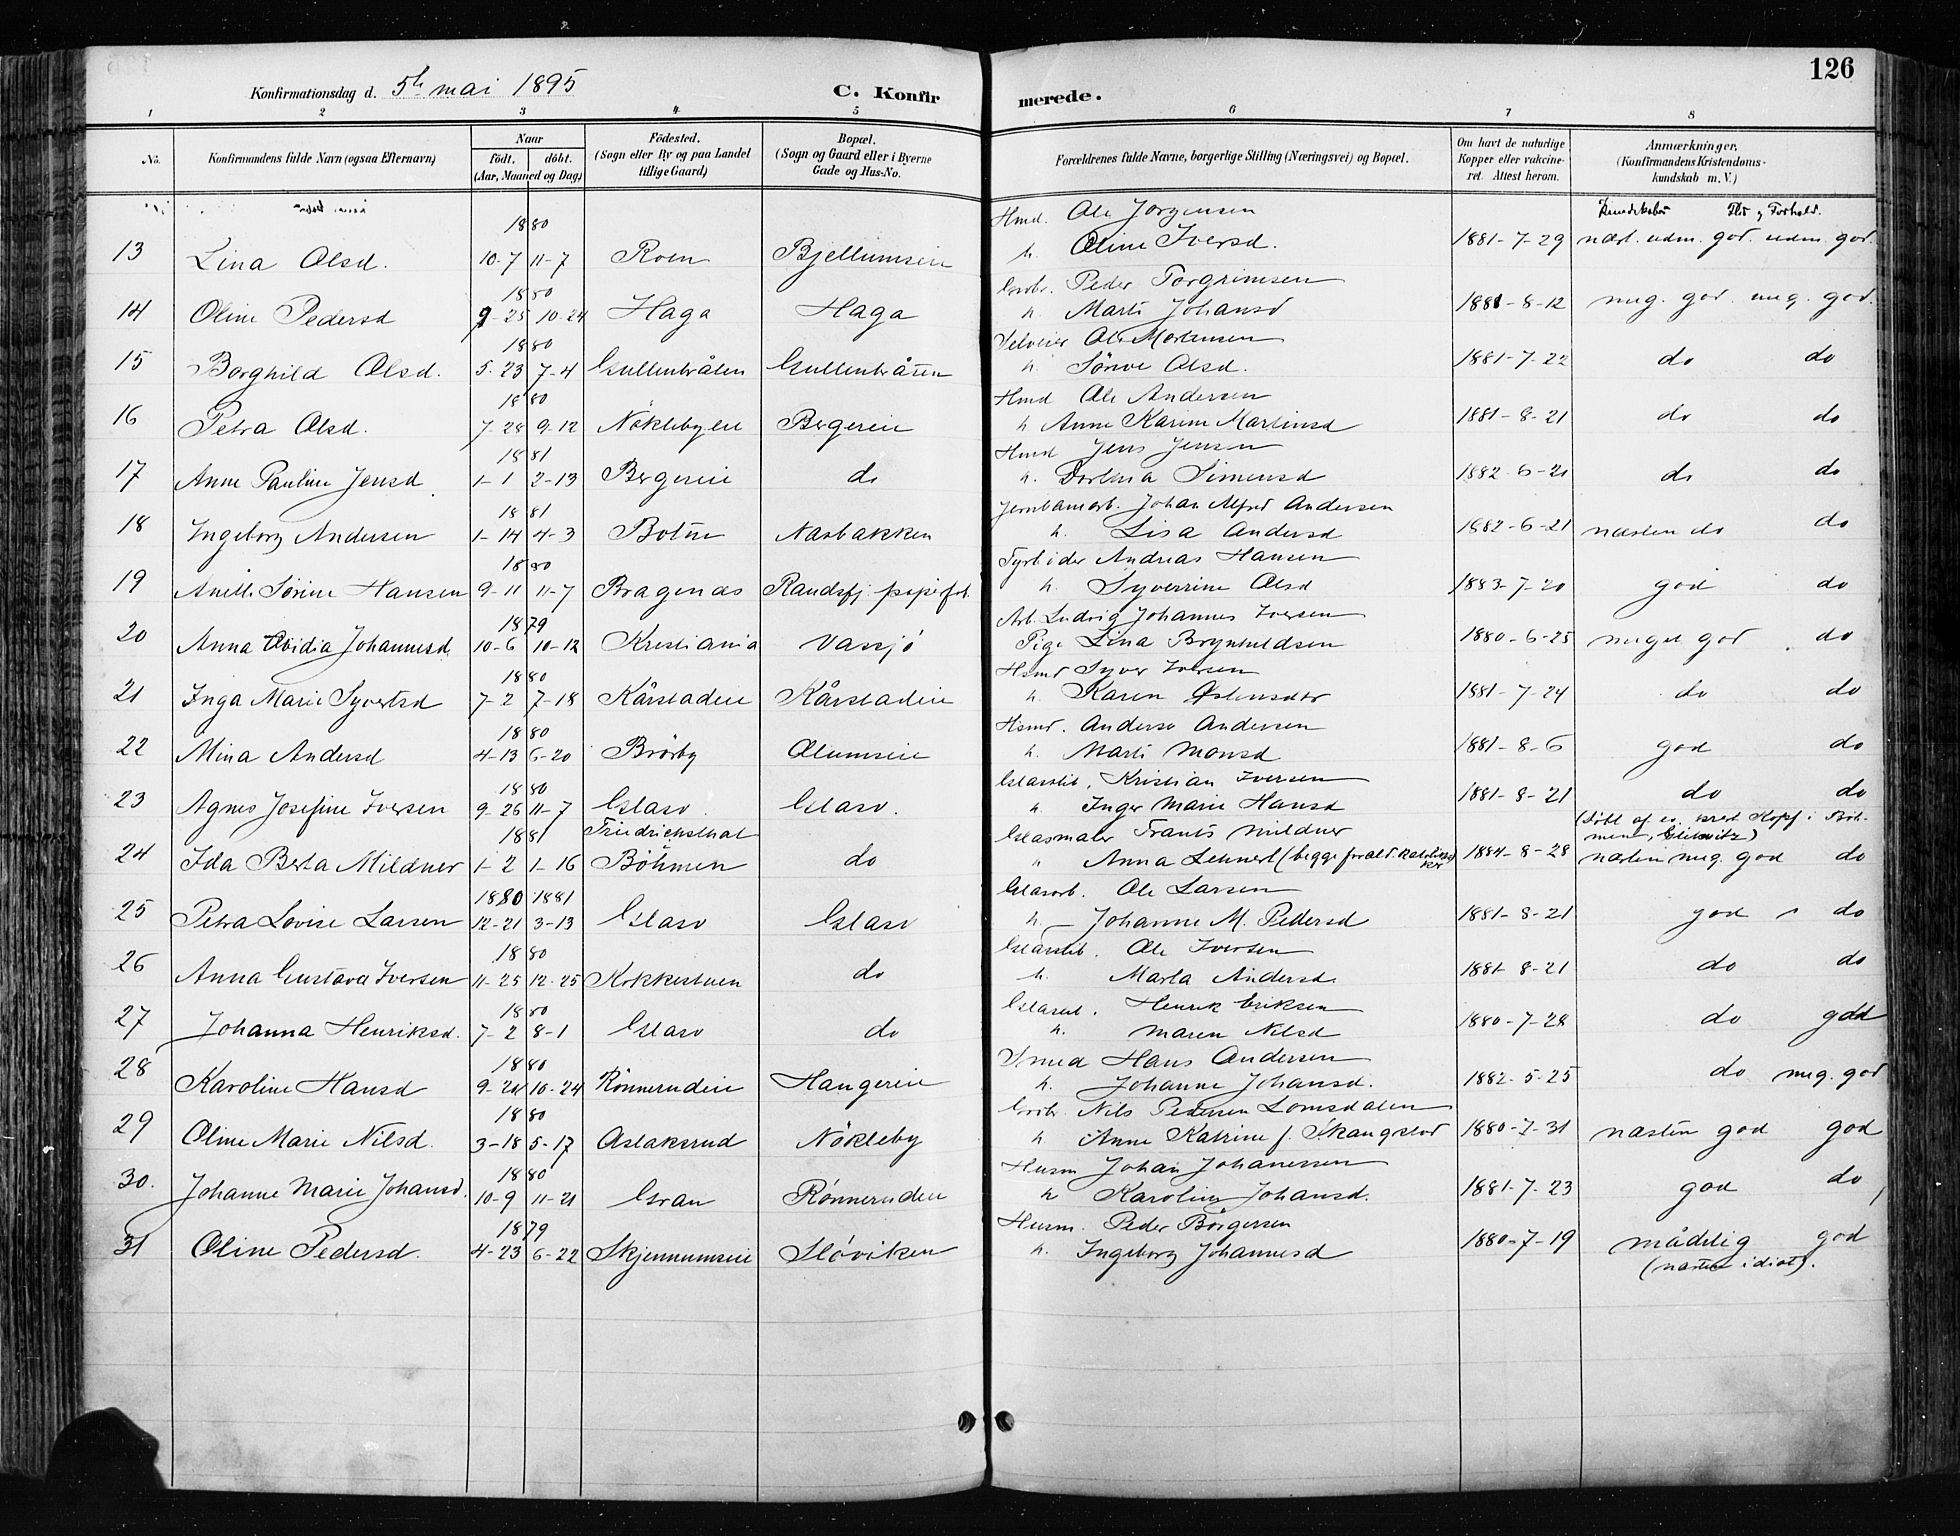 126
Konfirmationsdag d. 5te mai 1895 C. Konfirmerede.
1 2 3 4 5 6 7 8
No. Konfirmandens fulde Navn (ogsaa Efternavn) Naar födt. döbt. (Aar, Maaned og Dag) Födested. (Sogn eller By og paa Landet tillige Gaard) Bopæl. (Sogn og Gaard eller i Byerne Gade og Hus-No. Forældrenes fulde Navne, borgerlige Stilling (Næringsvei) og Bopæl. Om havt de naturlige Kopper eller vakcineret. Attest herom. Anmærkninger. (Konfirmandens Kristendomskundskab m. V.)
1880 Hmd. Ole Jorgensen Kundskaber Flid og Forhold.
13 Lina Olsd. 10-7 11-7 Roen Bjellumseie h. Oline Iversd. 1881-7-29 næst. udm. god. udm. god.
1880 Grdbr. Peder Torgrimsen
14 Oline Pedersd 9-25 10-24 Haga Haga h. Marti Johansd 1881-8-12 meg. god. meg. god.
1880 Selveier Ole Mortensen
15 Borghild Olsd. 5-23 7-4 Gullenbråten Gullenbråten h. Sørine Olsd. 1881-7-22 do do
1880 Hmd Ole Andersen
16 Petra Olsd. 7-28 9-12 Nøklebyeie Bergereie h Anne Karine Martinsd 1881-8-21 do do
1881 Hmd Jens Jensen
17 Anne Pauline Jensd 1-1 2-13 Bergereie do h. Dorthea Simensd 1882-6-21 do do
1881 Jernbanearb. Johan Alfred Andersen
18 Ingeborg Andersen 1-14 4-3 Botne Næsbakken h. Lisa Andersd 1882-6-21 næsten do do
1880 Fyrbøder Andreas Hansen
19 Anett. Sørine Hansen 9-11 11-7 Bragenæs Randsfj. papirfab. h. Syverine Olsd 1883-7-20 god do
1879 Arb. Ludvig Johannes Iversen
20 Anna Ovidia Johannesd. 10-6 10-12 Kristiania Vassjø Pige Lina Brynhildsen 1880-6-25 meget god do
1880 Hsmd Syver Iversen
21 Inga Marie Syvertsd 7-2 7-18 Kårstadeie Kårstadeie h. Karen Østensdtr 1881-7-24 do do
1880 Hsmd. Anders Andersen
22 Mina Andersd 4-13 6-20 Brørby Olumseie h. Marti Monsd 1881-8-6 god do
1880 Glassleb. Kristian Iversen
23 Agnes Josefine Iversen 9-26 11-7 Glasv. Glasv. h. Inger Marie Hansd 1881-8-21 do do
1881 Friedrichsthal Glasmaler Frants Mildner (Døbt af ev. præst Kopf i Böhmen, Gleiwitz)
24 Ida Berta Mildner 1-2 1-16 Böhmen do " Anna Lehnert (begge forældr. katolikker) 1884-8-28 næsten meg. god do
1880 1881 Glasarb. Ole Larsen
25 Petra Lovise Larsen 12-21 3-13 Glasv Glasv h. Johanne M. Pedersd 1881-8-21 god do
1880 Glassleb. Ole Iversen
26 Anna Gustava Iversen 11-25 12-25 Kokkestuen do h. Marta Andersd. 1881-8-21 do do
1880 Henrik Eriksen
27 Johanna Henriksd. 7-2 8-1 Glasv do h. Maren Nilsd 1880-7-28 do god
1880 Smed Hans Andersen
28 Karoline Hansd 9-20 10-24 Rønnerudeie Haugereie h. Johanne Johansd. 1882-5-25 do meg. god
1880 Grdbr. Nils Pedersen Lomsdalen
29 Oline Marie Nilsd. 3-18 5-17 Aslaksrud Nøkleby h Anne Katrine f. Skaugstad 1880-7-31 næsten god god
1880 Husm Johan Johanessen
30. Johanne Marie Johansd. 10-9 11-21 Gran Rønneruden h Karoline Johansd. 1881-7-23 god do
1879 Husm. Peder Börgersen
31 Oline Pedersd. 4-23 6-22 Skjennumseie Sløviken h. Ingeborg Johannesd 1880-7-19 mådelig god
(næsten idiot).